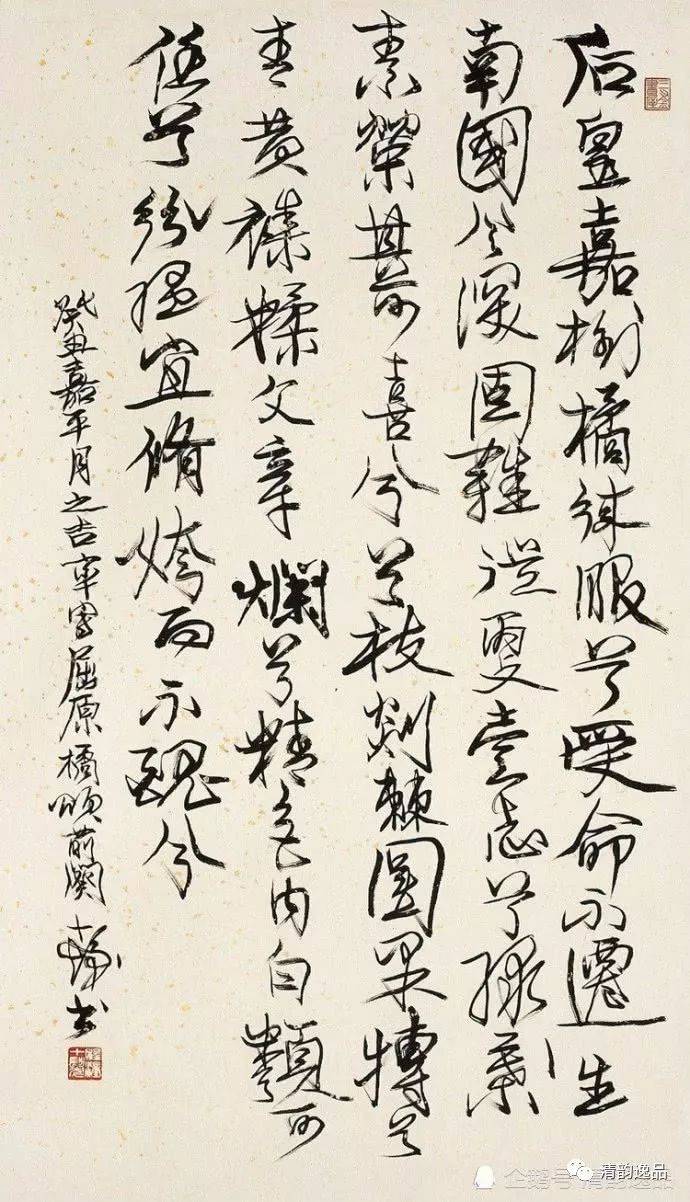 后皇嘉樹橘徠服兮受命不遷生
南國兮深固難徙更壹志兮綠葉
素榮其可喜兮枝剡棘圓果摶兮
青黃雜糅文章爛兮精色內白類可
任兮紛縕宜脩姱而不醜兮
癸丑嘉平月之吉率寫屈原橘頌前闋 書
企鹅号 清韵逸品
清韵逸品